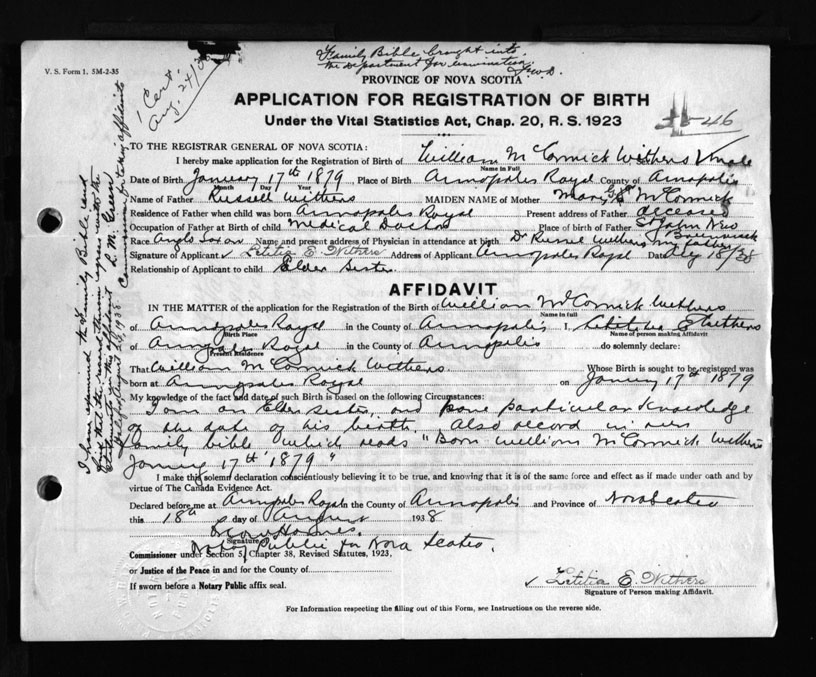 Family Bible brought into
the Department for examination.
F.W.D.
V. S. Form 1, 5M-2-35
Cert.
Aug. 24/38
PROVINCE OF NOVA SCOTIA
APPLICATION FOR REGISTRATION OF BIRTH
Under the Vital Statistics Act, Chap. 20, R. S. 1923
TO THE REGISTRAR GENERAL OF NOVA SCOTIA:
I hereby make application for the Registration of Birth of William McCormick Withers male
Name in Full
Date of Birth January 17th 1879 Place of Birth Annapolis Royal County of Annapolis
Month Day Year
Name of Father Russell Withers MAIDEN NAME of Mother Mary McCormick
Residence of Father when child was born Annapolis Royal Present address of Father deceased
Occupation of Father at Birth of child Medical Doctor Place of birth of Father St John New Brunswick
Race Anglo Saxon Name and present address of Physician in attendance at birth Dr Russel Withers my father
Signature of Applicant Letitia E Withers Address of Applicant Annapolis Royal Date Aug 18/38
Relationship of Applicant to child Elder Sister
AFFIDAVIT
IN THE MATTER of the application for the Registration of the Birth of William McCormick Withers
Name in full
of Annapolis Royal in the County of Annapolis I, Letitia E Withers
Birth Place Name of person making Affidavit
of Annapolis Royal in the County of Annapolis do solemnly declare:
Present Residence
That William McCormick Withers Whose Birth is sought to be registered was
born at Annapolis Royal on January 17th 1879
My knowledge of the fact and date of such Birth is based on the following Circumstances:
I am an Elder sister, and have particular knowledge
of the date of his birth. Also record in our
family bible which reads "Born William McCormick Withers
January 17th 1879"
I make this solemn declaration conscientiously believing it to be true, and knowing that it is of the same force and effect as if made under oath and by
virtue of The Canada Evidence Act.
Declared before me at Annapolis Royal in the County of Annapolis and Province of Nova Scotia
this 18th day of August 1938
Signature
Notary Public for Nova Scotia.
Commissioner under Section 5, Chapter 38, Revised Statutes, 1923,
or Justice of the Peace in and for the County of
If sworn before a Notary Public affix seal.
Letitia E. Withers
Signature of Person making Affidavit.
For Information respecting the filling out of this Form, see Instructions on the reverse side.
I have examined the Family Bible and
find that the record therein agrees with the
statements in this affidavit L. M. Green
Halifax August 24, 1938. Commissioner for taking affidavits